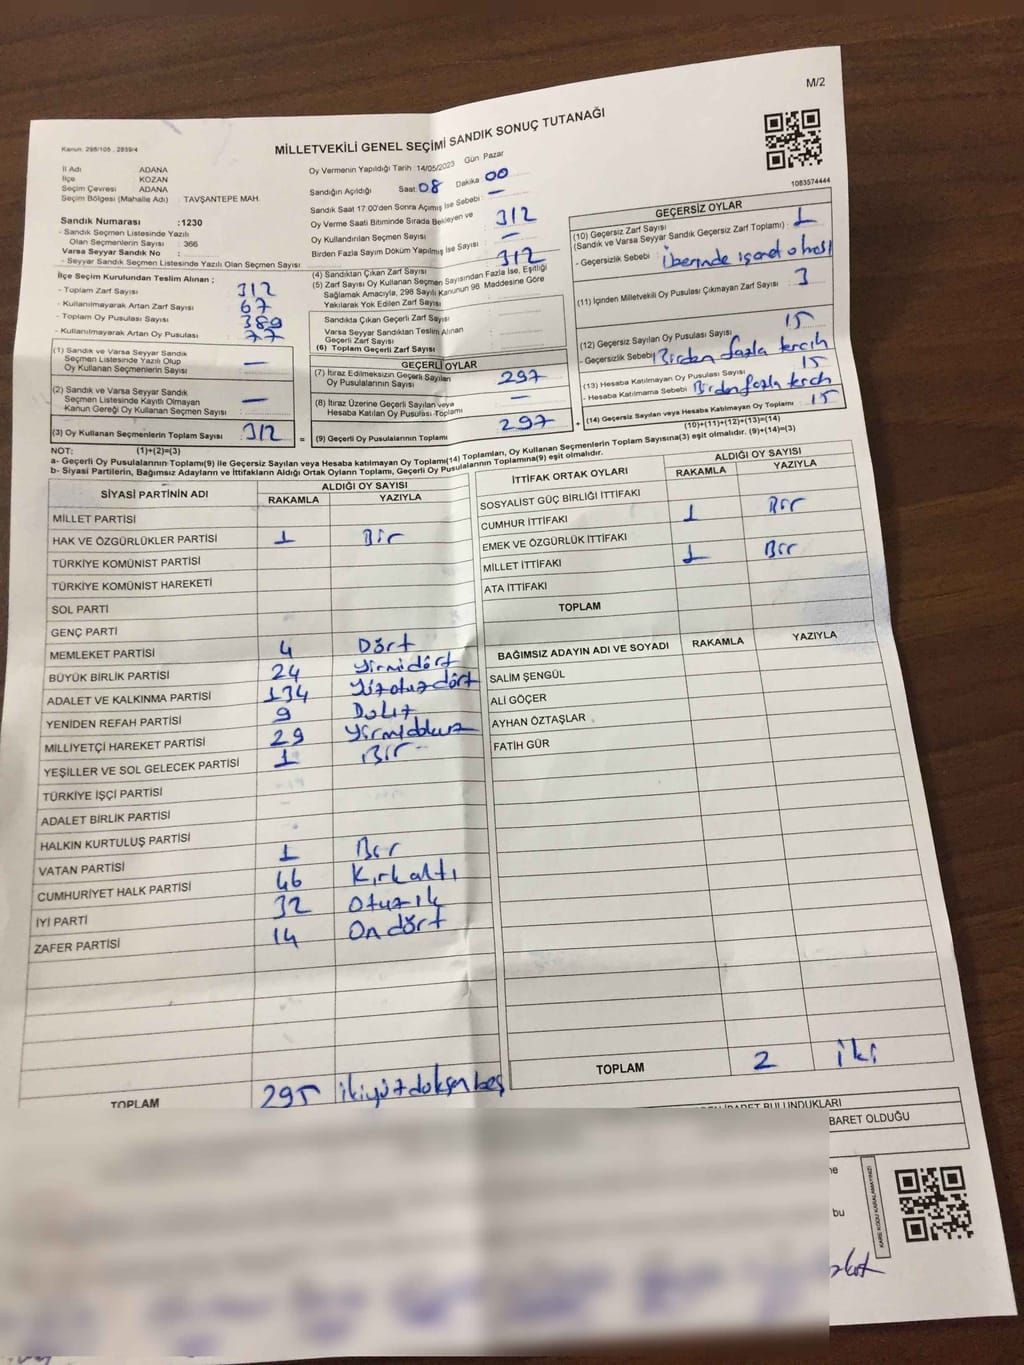 M/2
Kanun: 298/105 , 2839/4
MİLLETVEKİLİ GENEL SEÇİMİ SANDIK SONUÇ TUTANAĞI
İl Adı ADANA
İlçe KOZAN
Seçim Çevresi ADANA
Seçim Bölgesi (Mahalle Adı) : TAVŞANTEPE MAH.
Sandık Numarası :1230
- Sandık Seçmen Listesinde Yazılı
Olan Seçmenlerin Sayısı : 366
Varsa Seyyar Sandık No :
- Seyyar Sandık Seçmen Listesinde Yazılı Olan Seçmen Sayısı :
İlçe Seçim Kurulundan Teslim Alınan ;
- Toplam Zarf Sayısı 312
- Kullanılmayarak Artan Zarf Sayısı : 67
- Toplam Oy Pusulası Sayısı : 389
- Kullanılmayarak Artan Oy Pusulası : 77
(1) Sandık ve Varsa Seyyar Sandık
Seçmen Listesinde Yazılı Olup
Oy Kullanan Seçmenlerin Sayısı : —
(2) Sandık ve Varsa Seyyar Sandık
Seçmen Listesinde Kayıtlı Olmayan
Kanun Gereği Oy Kullanan Seçmen Sayısı : —
(3) Oy Kullanan Seçmenlerin Toplam Sayısı 312 =
(1)+(2)=(3)
Oy Vermenin Yapıldığı Tarih :14/05/2023 Gün Pazar
Sandığın Açıldığı Saat: 08 Dakika 00
Sandık Saat 17:00'den Sonra Açılmış İse Sebebi : —
Oy Verme Saati Bitiminde Sırada Bekleyen ve
Oy Kullandırılan Seçmen Sayısı : 312
Birden Fazla Sayım Döküm Yapılmış İse Sayısı : —
(4) Sandıktan Çıkan Zarf Sayısı : 312
(5) Zarf Sayısı Oy Kullanan Seçmen Sayısından Fazla İse, Eşitliği
Sağlamak Amacıyla, 298 Sayılı Kanunun 98. Maddesine Göre
Yakılarak Yok Edilen Zarf Sayısı
Sandıkta Çıkan Geçerli Zarf Sayısı :
Varsa Seyyar Sandıktan Teslim Alınan
Geçerli Zarf Sayısı
(6) Toplam Geçerli Zarf Sayısı
GEÇERLİ OYLAR
(7) İtiraz Edilmeksizin Geçerli Sayılan
Oy Pusulalarının Sayısı : 297
(8) İtiraz Üzerine Geçerli Sayılan veya
Hesaba Katılan Oy Pusulası Toplamı : —
(9) Geçerli Oy Pusulalarının Toplamı : 297 +
1083574444
GEÇERSİZ OYLAR
(10) Geçersiz Zarf Sayısı
(Sandık ve Varsa Seyyar Sandık Geçersiz Zarf Toplamı) : 1
- Geçersizlik Sebebi : Üzerinde işaret olması
(11) İçinden Milletvekili Oy Pusulası Çıkmayan Zarf Sayısı : 3
(12) Geçersiz Sayılan Oy Pusulası Sayısı : 15
- Geçersizlik Sebebi Birden fazla tercih
(13) Hesaba Katılmayan Oy Pusulası Sayısı : 15
- Hesaba Katılmama Sebebi : Birden fazla tercih
(14) Geçersiz Sayılan veya Hesaba Katılmayan Oy Toplamı : 15
(10)+(11)+(12)+(13)=(14)
NOT:
a- Geçerli Oy Pusulalarının Toplamı(9) ile Geçersiz Sayılan veya Hesaba katılmayan Oy Toplamı(14) Toplamları, Oy Kullanan Seçmenlerin Toplam Sayısına(3) eşit olmalıdır. (9)+(14)=(3)
b- Siyasi Partilerin, Bağımsız Adayların ve İttifakların Aldığı Ortak Oyların Toplamı, Geçerli Oy Pusulalarının Toplamına(9) eşit olmalıdır.
SİYASİ PARTİNİN ADI ALDIĞI OY SAYISI
RAKAMLA YAZIYLA
MİLLET PARTİSİ
HAK VE ÖZGÜRLÜKLER PARTİSİ 1 Bir
TÜRKİYE KOMÜNİST PARTİSİ
TÜRKİYE KOMÜNİST HAREKETİ
SOL PARTİ
GENÇ PARTİ
MEMLEKET PARTİSİ 4 Dört
BÜYÜK BİRLİK PARTİSİ 24 Yirmidört
ADALET VE KALKINMA PARTİSİ 134 Yüzotuzdört
YENİDEN REFAH PARTİSİ 9 Dokuz
MİLLİYETÇİ HAREKET PARTİSİ 29 Yirmidokuz
YEŞİLLER VE SOL GELECEK PARTİSİ 1 Bir
TÜRKİYE İŞÇİ PARTİSİ
ADALET BİRLİK PARTİSİ
HALKIN KURTULUŞ PARTİSİ
VATAN PARTİSİ 1 Bir
CUMHURİYET HALK PARTİSİ 46 Kırkaltı
İYİ PARTİ 32 Otuzik
ZAFER PARTİSİ 14 Ondört
TOPLAM 295 ikiyüzdoksanbeş
İTTİFAK ORTAK OYLARI ALDIĞI OY SAYISI
RAKAMLA YAZIYLA
SOSYALİST GÜÇ BİRLİĞİ İTTİFAKI
CUMHUR İTTİFAKI 1 Bir
EMEK VE ÖZGÜRLÜK İTTİFAKI
MİLLET İTTİFAKI 1 Bir
ATA İTTİFAKI
TOPLAM
BAĞIMSIZ ADAYIN ADI VE SOYADI RAKAMLA YAZIYLA
SALİM ŞENGÜL
ALİ GÖÇER
AYHAN ÖZTAŞLAR
FATİH GÜR
TOPLAM 2 iki
BULUNDUKLARI
BARET OLDUĞU
bu
KARE KODU KARALAMAYINIZ!